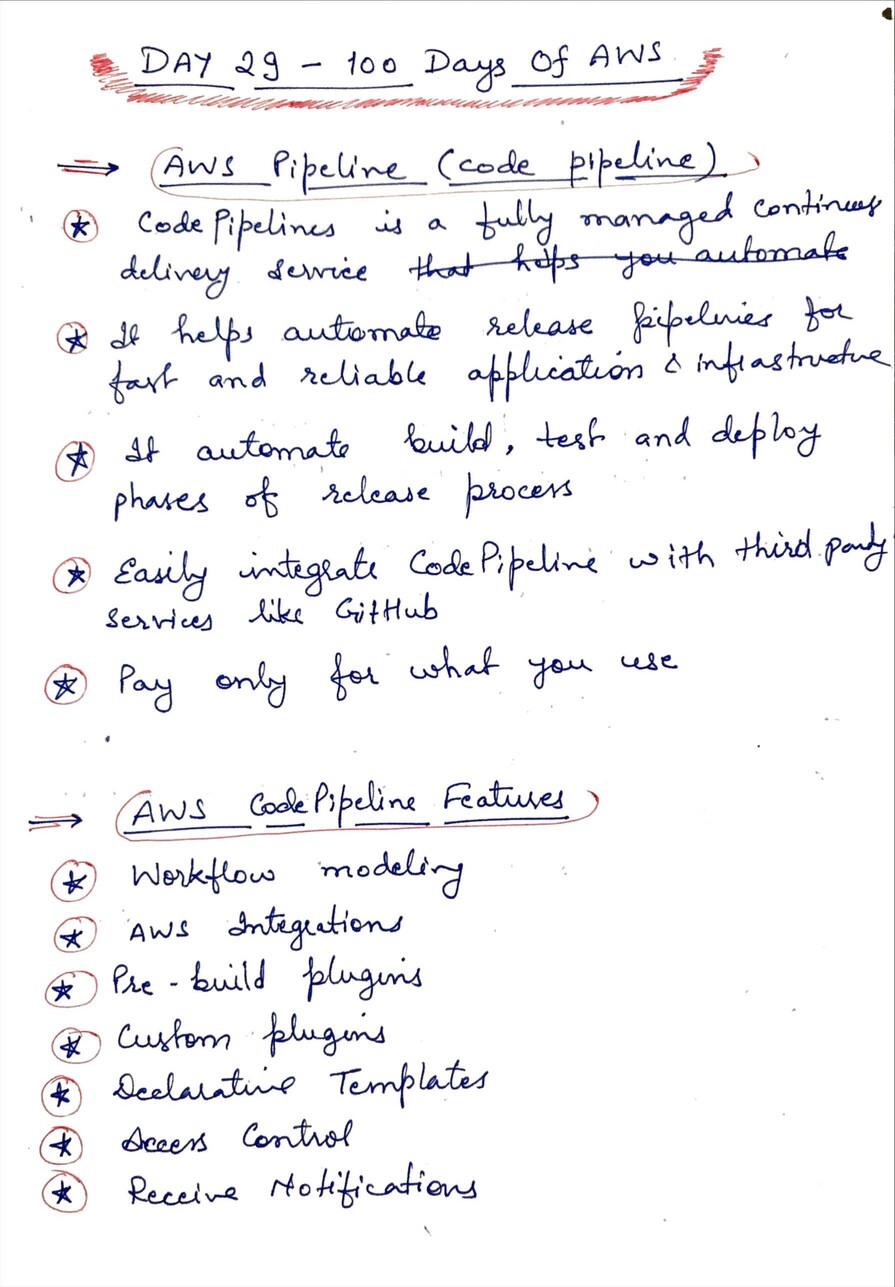 DAY 29 - 100 Days Of AWS
⇒ AWS Pipeline (code pipeline)
★ CodePipelines is a fully managed continues
delivery service ~~that helps you automate~~
★ It helps automate release pipelines for
fast and reliable application & infrastructure
★ It automate build, test and deploy
phases of release process
★ Easily integrate CodePipeline with third party
services like GitHub
★ Pay only for what you use
⇒ AWS CodePipeline Features
★ Workflow modeling
★ AWS Integrations
★ Pre-build plugins
★ Custom plugins
★ Declarative Templates
★ Access Control
★ Receive Notifications